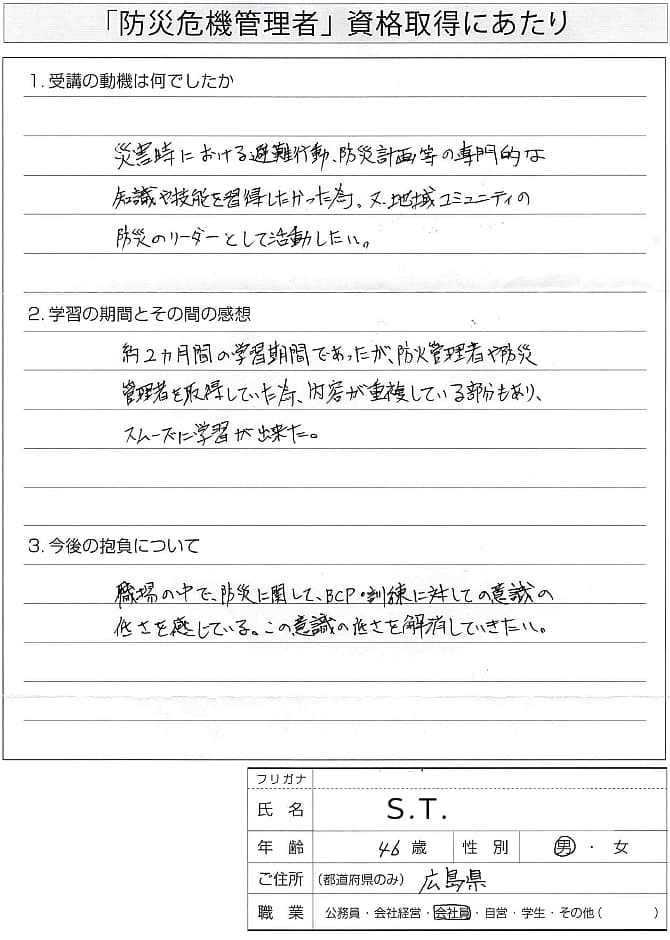 「防災危機管理者」資格取得にあたり
1. 受講の動機は何でしたか
災害時における避難行動、防災計画等の専門的な
知識や技能を習得したかった為。又、地域コミュニティの
防災のリーダーとして活動したい。
2. 学習の期間とその間の感想
約2カ月間の学習期間であったが、防火管理者や防災
管理者を取得していた為、内容が重複している部分もあり、
スムーズに学習が出来た。
3. 今後の抱負について
職場の中で、防災に関して、BCP・訓練に対しての意識の
低さを感じている。この意識の低さを解消していきたい。
フリガナ
氏名 S.T.
年齢 46歳 性別 男・女
ご住所 (都道府県のみ) 広島県
職業 公務員・会社経営・会社員・自営・学生・その他( )